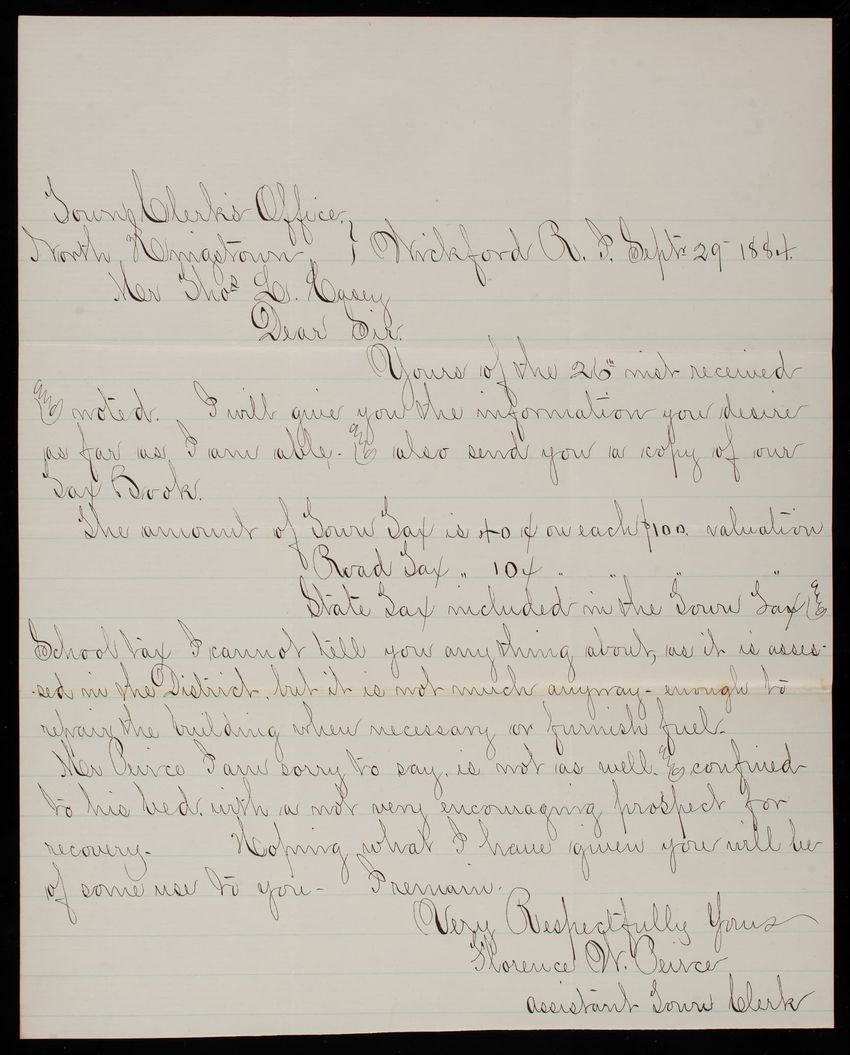 Town Clerk's Office,
North Kingstown, } Wickford R. I. Sept. 29 - 1884.
Mr Thos L. Casey
Dear Sir.
Yours of the 26" inst received
& noted. I will give you the information you desire
as far as I am able. & also send you a copy of our
Tax Book.
The amount of Town Tax is 40 ¢ on each $100. valuation
Road Tax " 10 ¢ " " " "
State Tax included in the Town Tax &
School tax I cannot tell you anything about, as it is asses-
-sed in the District, but it is not much anyway - enough to
repair the building when necessary or furnish fuel.
Mr Peirce I am sorry to say, is not as well. & confined
to his bed. with a not very encouraging prospect for
recovery. Hoping what I have given you will be
of some use to you - I remain.
Very Respectfully Yours
Florence W. Peirce
Assistant Town Clerk